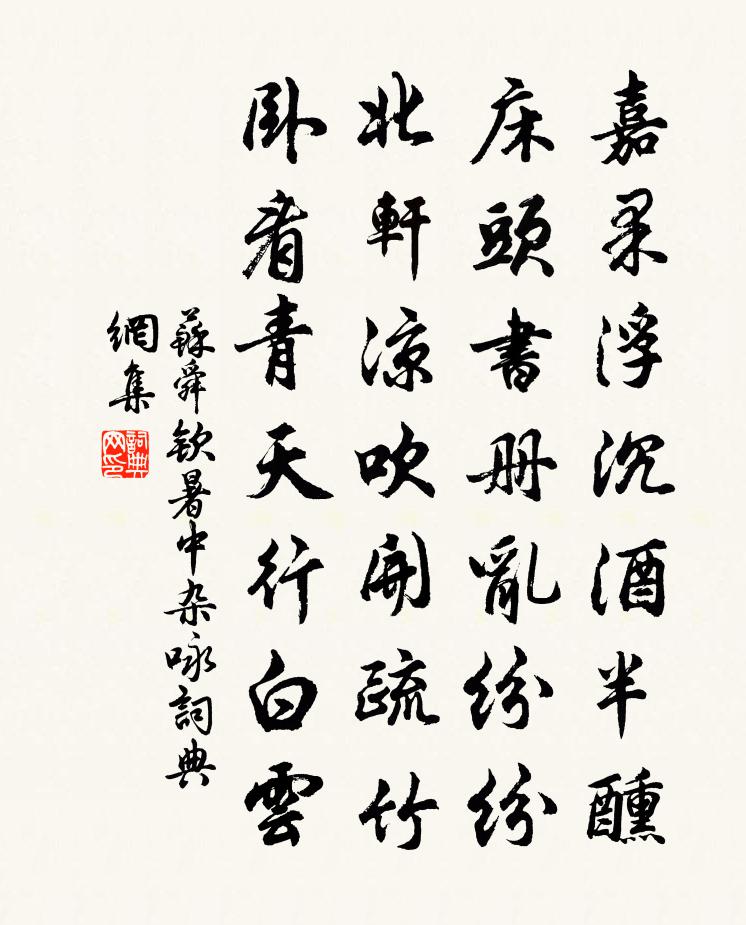 嘉果浮沉酒半醺
床頭書册亂紛紛
北軒涼吹開疏竹
卧看青天行白雲
蘇舜欽暑中杂咏詞典
網集
詞典网印